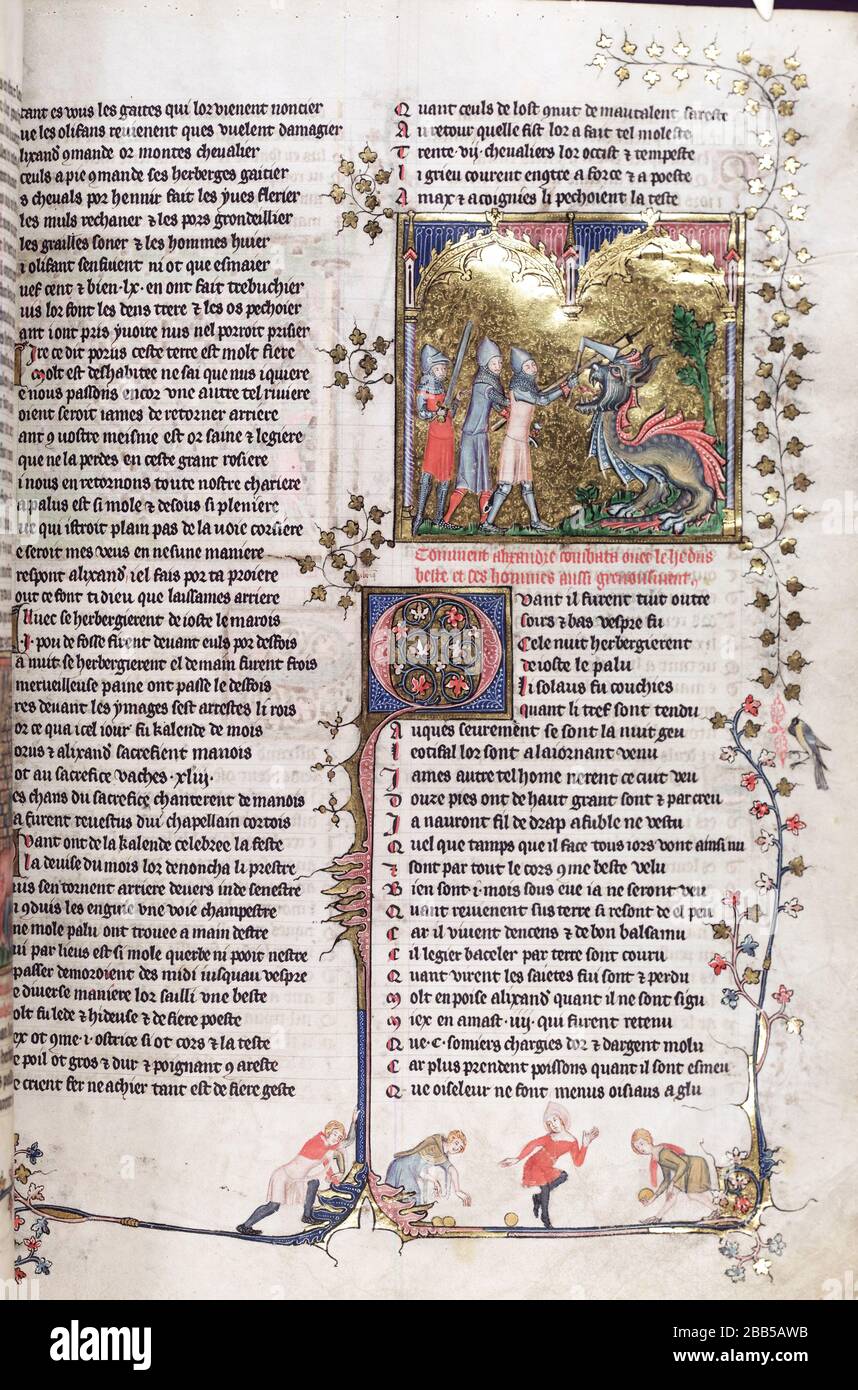 tant es vous les gaites qui lor vienent noncier
ue les olifans reuienent ques vuelent damagier
lixand ꝯmande or montes cheualier
ceuls a pie ꝯmande ses herberges gaitier
s cheuals por hennir fait les yues flerier
les muls rechaner ⁊ les pors grondeillier
les grailles soner ⁊ les hommes huier
i olifant senfuient ni ot que esmaier
uef cent ⁊ bien .lx. en ont fait trebuchier
uis lor font les dens trere ⁊ les os pechoier
ant i ont pris yuoire nus nel porroit prisier
ire ce dit porus ceste terre est molt fiere
molt est deshabitee ne sai que nus i quiere
e nous passons encor vne autre tel riuiere
oient seroit iames de retorner arriere
ant ꝯ vostre meisme est or saine ⁊ legiere
que ne la perdes en ceste grant rosiere
i nous en retornons toute nostre chariere
a palus est si mole ⁊ desous si pleniere
ue qui istroit plain pas de la uoie corsiere
e seroit mes veus en nesune maniere
respont alixand iel fais por ta proiere
out ce font ti dieu que laissames arriere
lluec se herbergierent de ioste le marois
.i. pou de fosse firent deuant euls por desfois
a nuit se herbergierent el demain furent frois
merueilleuse paine ont passe le desfois
res deuant les ymages sest arrestes li rois
or ce qua icel iour fu kalende de mois
orus ⁊ alixand sacrefient manois
ot au sacrefice vaches .xliij.
es chans du sacrefice chanterent de manois
a furent reuestus dui chapellain cortois
vant ont de la kalende celebree la feste
la deuise du mois lor denoncha li prestre
uis sen tornent arriere deuers inde senestre
i ꝯduis les enguie vne voie champestre
ne mole palu ont trouee a main destre
ui par lieus est si mole querbe ni pooit nestre
passer demoroient des midi iusquau vespre
e diuerse maniere lor sailli vne beste
olt fu lede ⁊ hideuse ⁊ de fiere poeste
ex ot ꝯme .i. ostrice si ot cors ⁊ la teste
e poil ot gros ⁊ dur ⁊ poignant ꝯ areste
e crient fer ne achier tant est de fiere geste
Quant ceuls de lost ꝯnut de mautalent sareste
Au retour quelle fist lor a fait tel moleste
Trente .vij. cheualiers lor occist ⁊ tempeste
Li grieu courent engtre a force ⁊ a poeste
A max ⁊ a coignies li pechoient la teste
Comment alixandre combati ouec le hedus
beste et des hommes aussi
Quant il furent tuit outre
soirs ⁊ bas vespre fu
Cele nuit herbergierent
de ioste le palu
Li solaus fu couchies
quant li tref sont tendu
Auques seurement se sont la nuit geu
I cotifal lor sont a laiornant venu
James autre tel home nerent ce cuit veu
Douze pies ont de haut grant sont ⁊ parcreu
Ja nauront fil de drap afuble ne vestu
Quel que tamps que il face tous iors vont ainsi nu
⁊ sont par tout le cors ꝯme beste velu
Bien sont .i. mois sous eue ia ne seront veu
Quant reuienent sus terre si resont de el peu
Car il viuent dencens ⁊ de bon balsamu
Cil legier baceler par terre sont couru
Quant virent les saietes fui sont ⁊ perdu
Molt en poise alixand quant il ne sont sigu
Miex en amast .iiij. qui furent retenu
Que .c. somiers chargies dor ⁊ dargent molu
Car plus prendent poissons quant il sont esmeu
Que oiseleur ne font menus oisiaus a glu
alamy
alamy
Image ID: 2BB5AWB
www.alamy.com